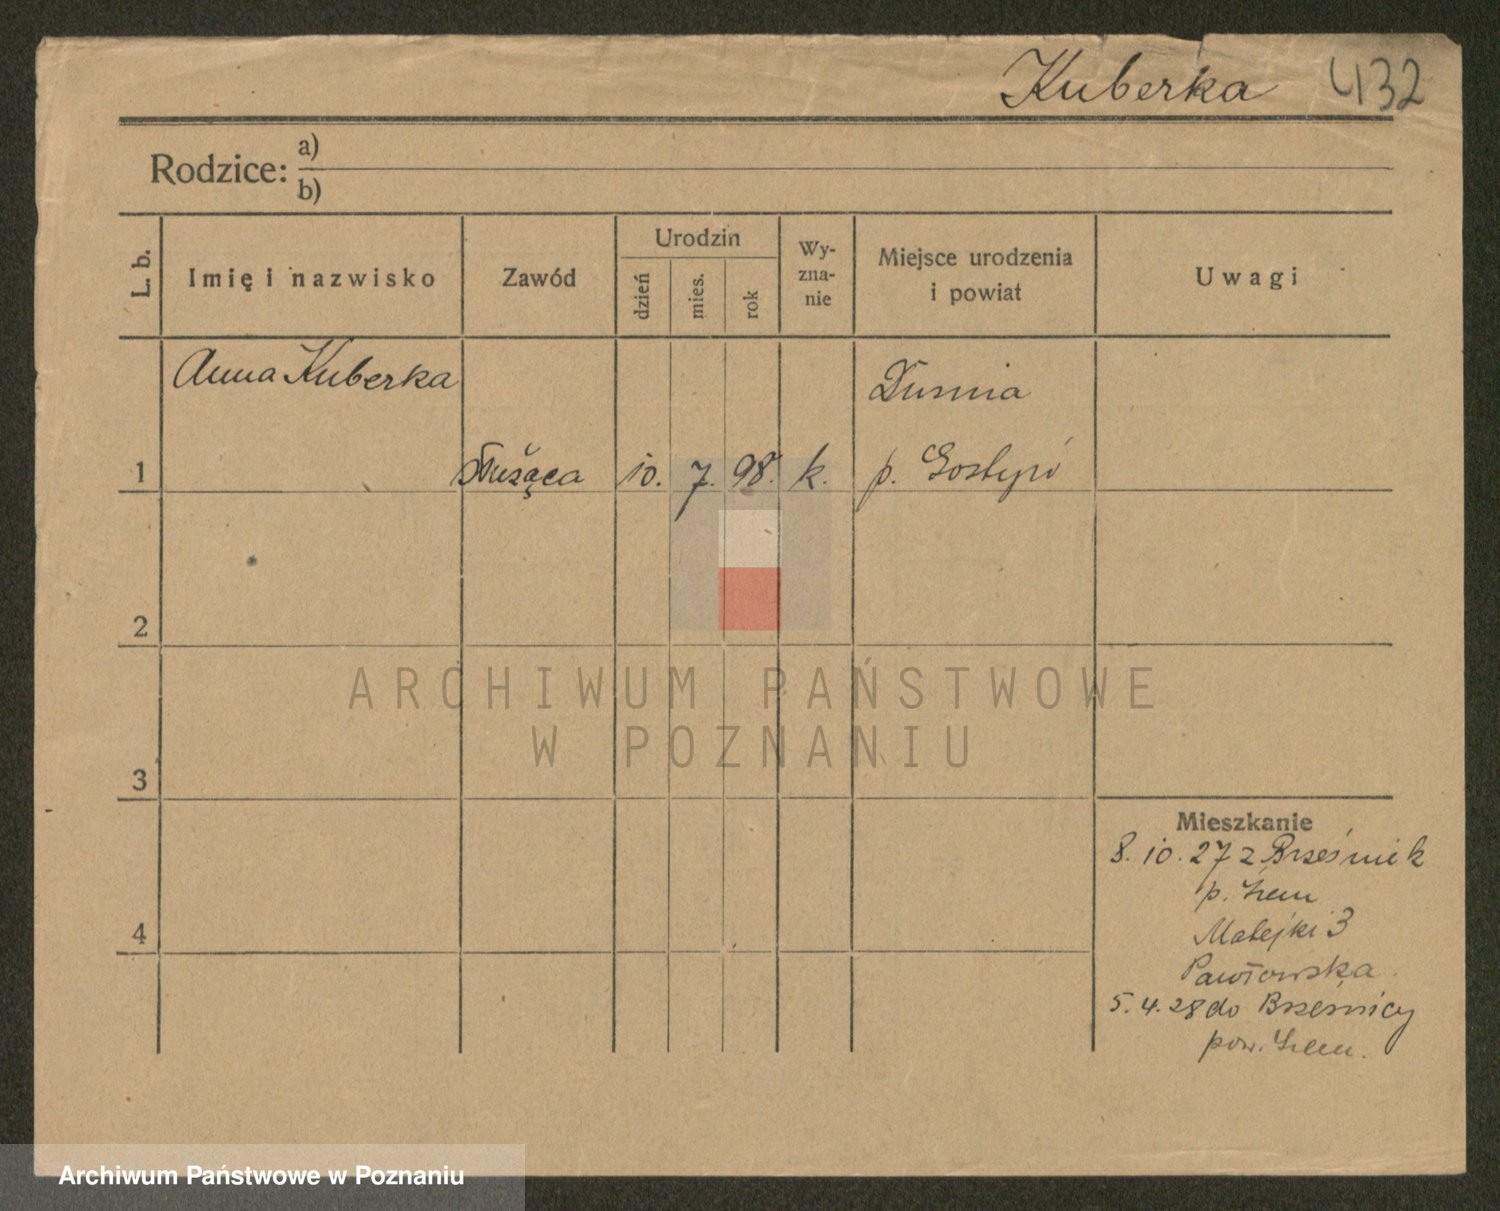 Kuberka 432
Rodzice: a)
b)
L. b.
Imię i nazwisko
Zawód
Urodzin
dzień
mies.
rok
Wy-
zna-
nie
Miejsce urodzenia
i powiat
Uwagi
Anna Kuberka
1 służąca 10. 7. 98. k. p. Gostyń
2
3
4
Mieszkanie
8. 10. 27 z Brześnik
p. Śrem
Matejki 3
Pawłowska
5. 4. 28 do Brześnicy
pow. Śrem.
ARCHIWUM PAŃSTWOWE
W POZNANIU
Archiwum Państwowe w Poznaniu